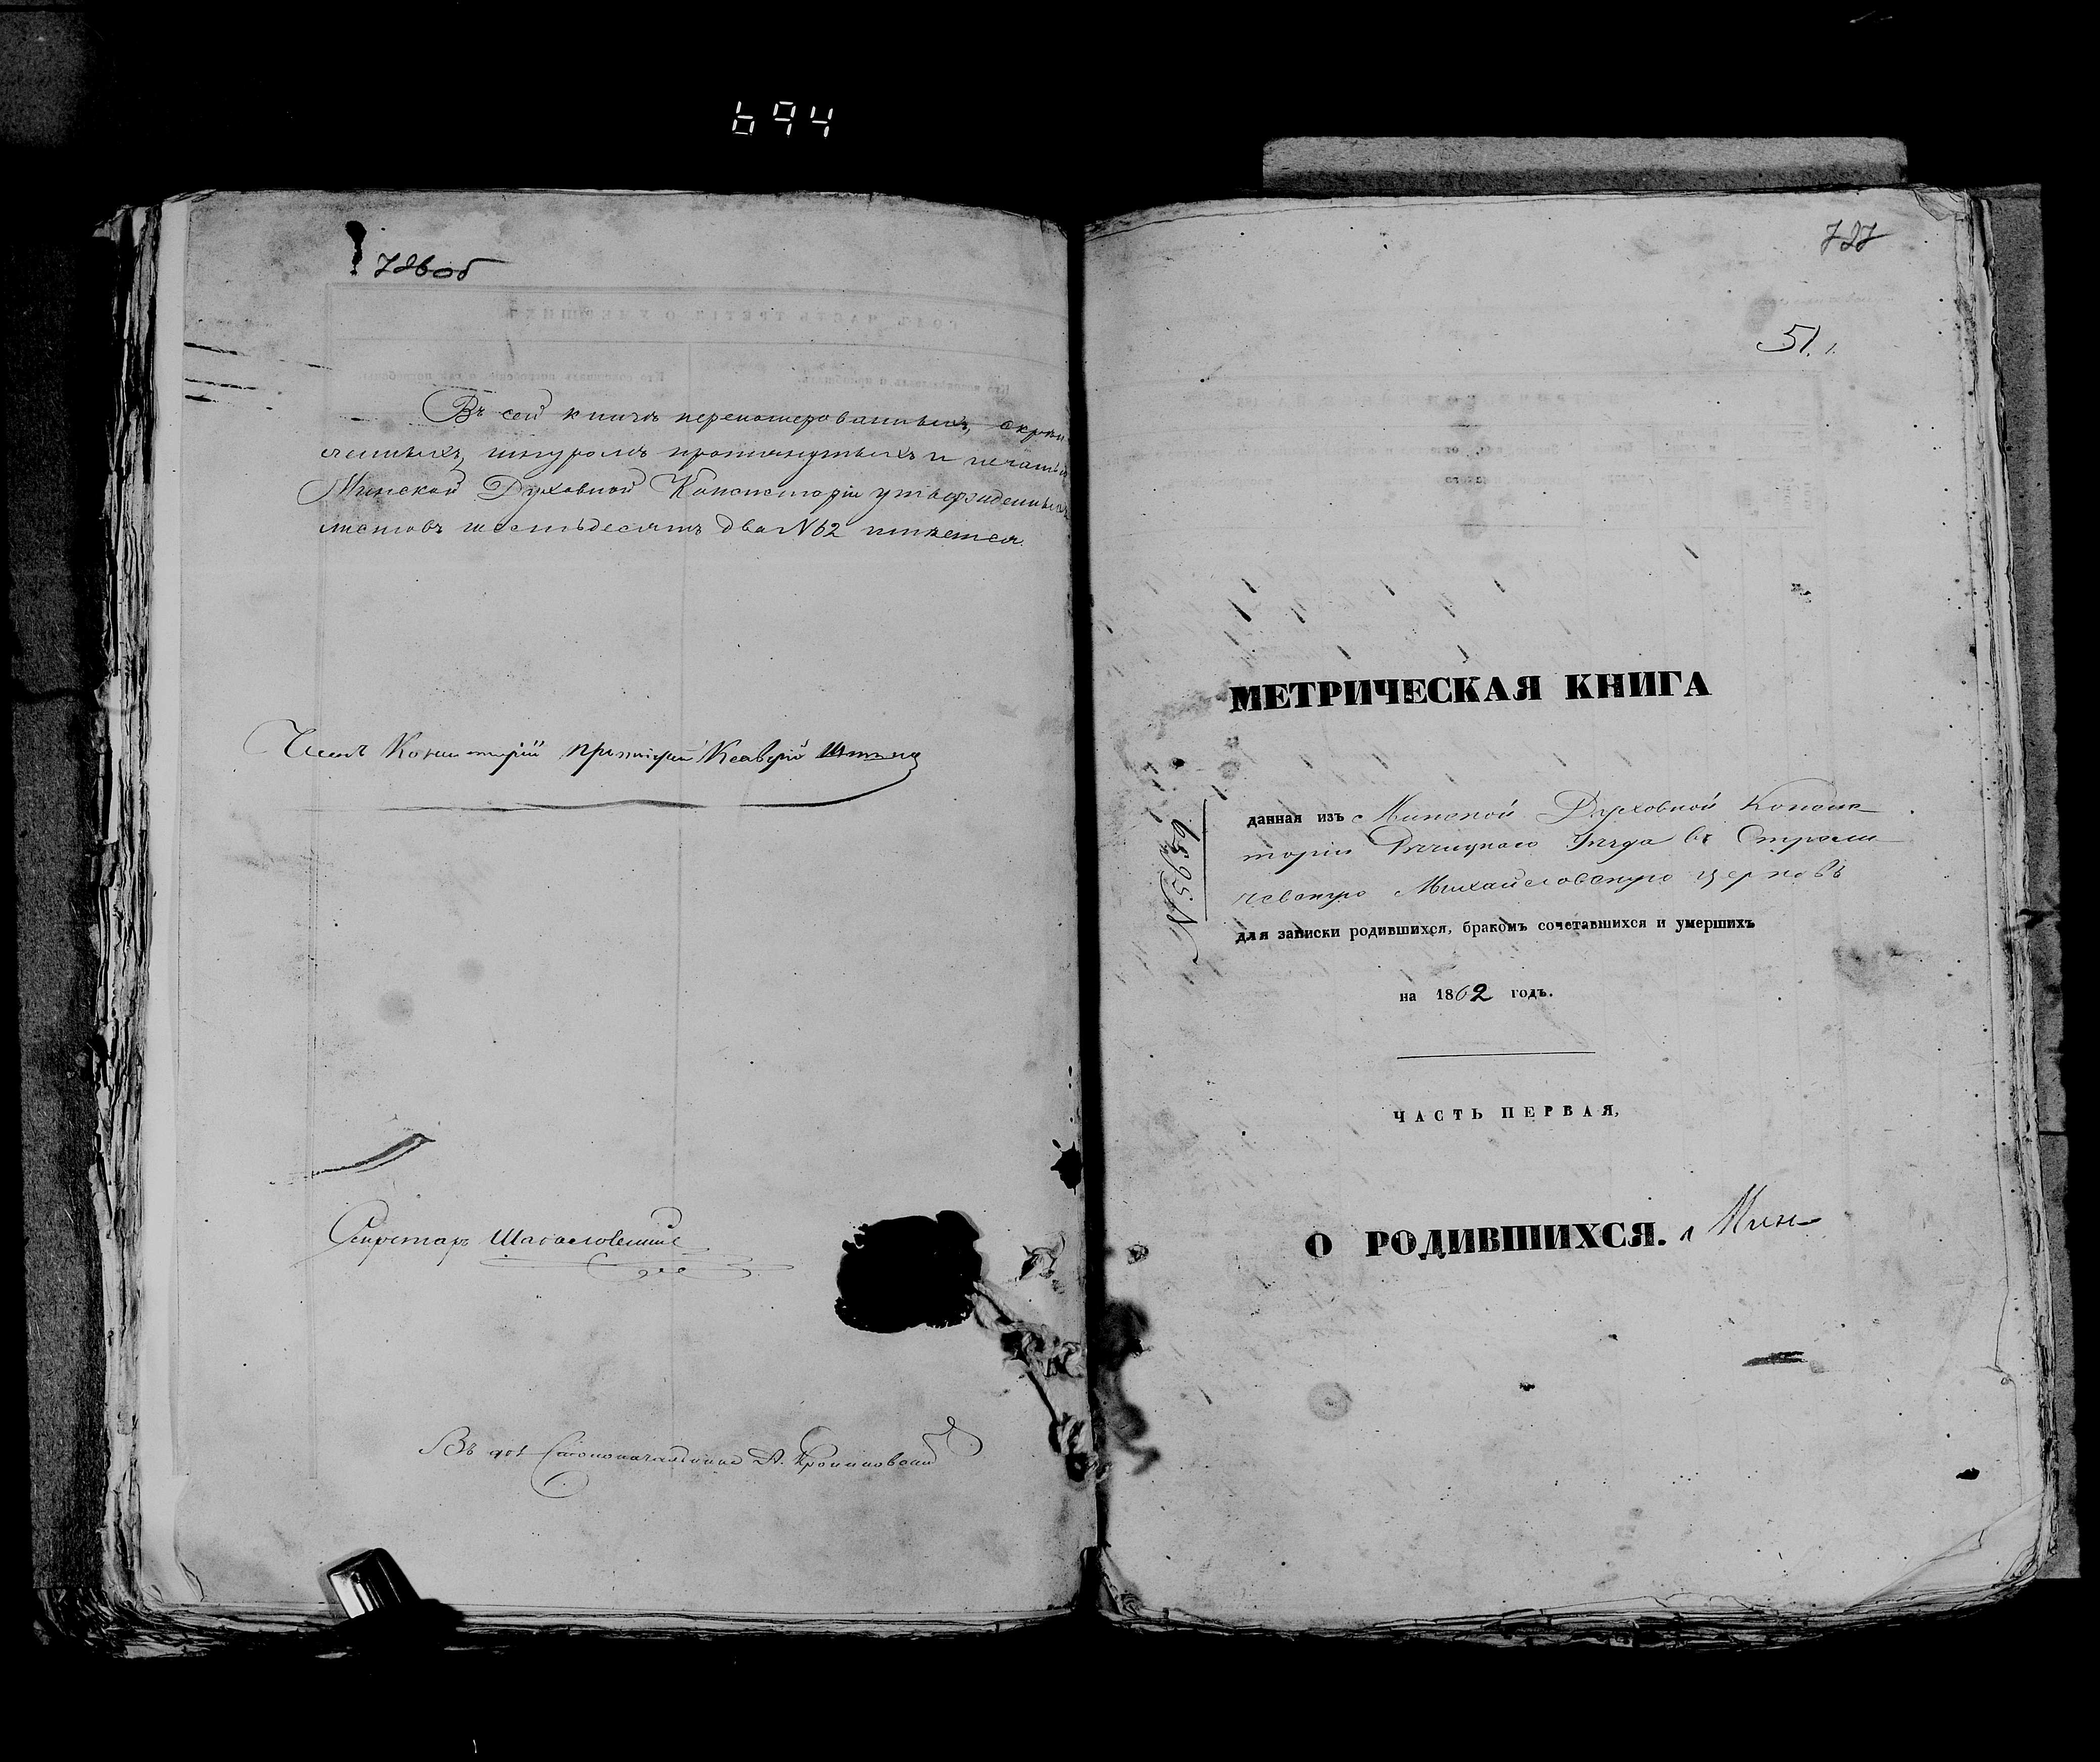 694
786 об
Въ сей книгѣ перенумерованныхъ, скрѣп
ленныхъ, шнуромъ протянутыхъ и печатью
Минской Духовной Консисторіи утвержденныхъ
листовъ шестьдесятъ два N 62 имѣется
Членъ Консисторіи Протоіерей
Секретарь
Въ дол. Столоначальника А.
787
51.
МЕТРИЧЕСКАЯ КНИГА
данная изъ Минской Духовной Консис
торіи Рѣчицкаго Уѣзда въ
Михайловскую церковь
для записки родившихся, бракомъ сочетавшихся и умершихъ
на 1862 годъ.
ЧАСТЬ ПЕРВАЯ,
О РОДИВШИХСЯ. Мин